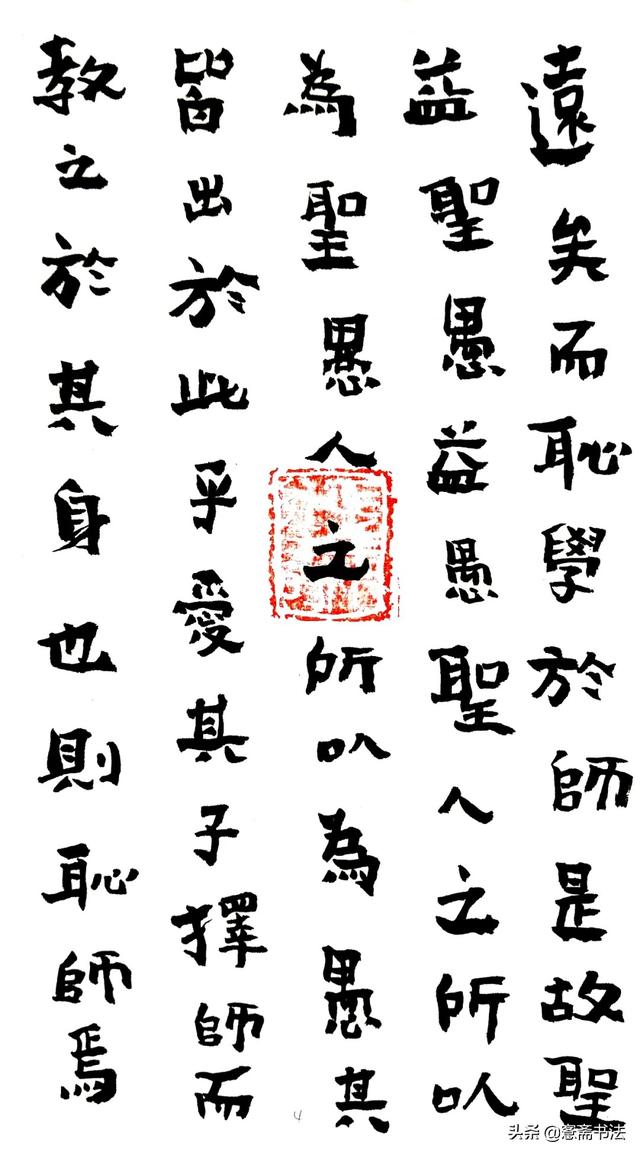 遠矣而恥學於師是故聖
益聖愚益愚聖人之所以
為聖愚人之所以為愚其
皆出於此乎愛其子擇師而
教之於其身也則恥師焉
4
头条 @斋书法